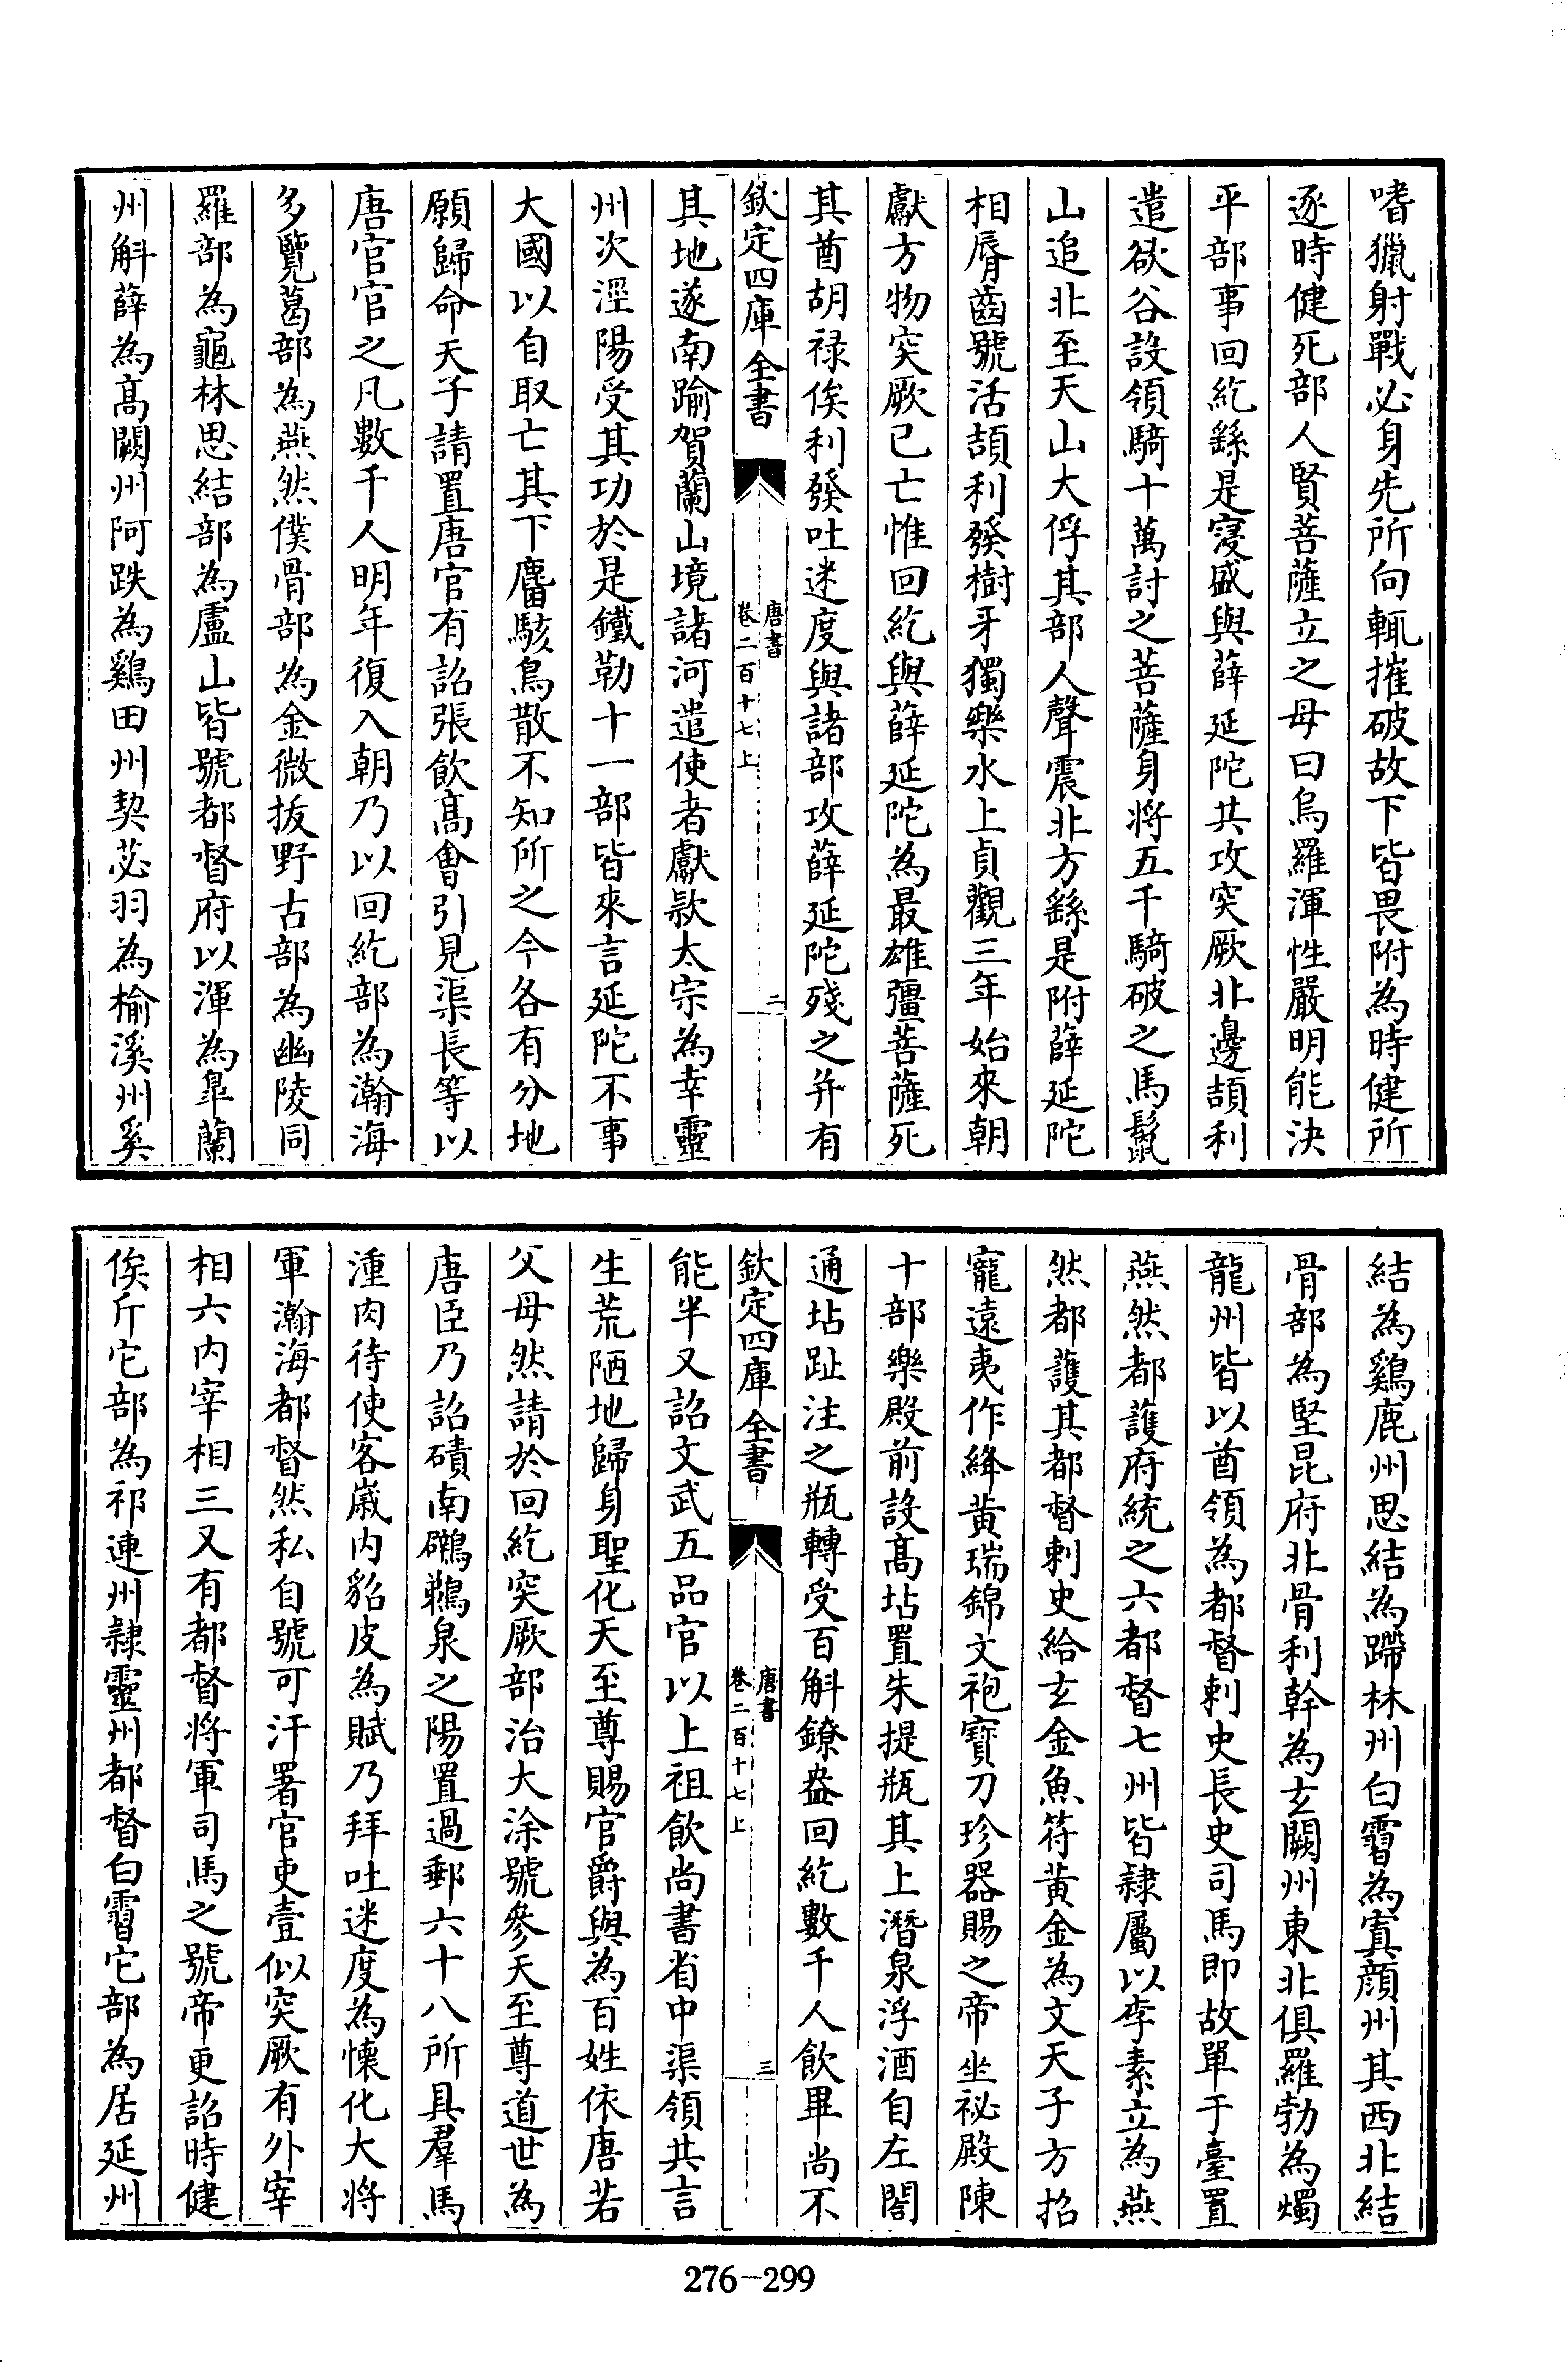 嗜獵射戰必身先所向輒摧破故下皆畏附為時健所
逐時健死部人賢菩薩立之母曰烏羅渾性嚴明能決
平部事回紇繇是寖盛與薛延陀共攻突厥北邊頡利
遣欲谷設領騎十萬討之菩薩身將五千騎破之馬鬛
山追北至天山大俘其部人聲震北方繇是附薛延陀
相脣齒號活頡利發樹牙獨樂水上貞觀三年始來朝
獻方物突厥已亡惟回紇與薛延陀為最雄彊菩薩死
其酋胡祿俟利發吐迷度與諸部攻薛延陀殘之并有
欽定四庫全書
唐書
卷二百十七上
二
其地遂南踰賀蘭山境諸河遣使者獻款太宗為幸靈
州次涇陽受其功於是鐵勒十一部皆來言延陀不事
大國以自取亡其下麕駭鳥散不知所之今各有分地
願歸命天子請置唐官有詔張飲高會引見渠長等以
唐官官之凡數千人明年復入朝乃以回紇部為瀚海
多覽葛部為燕然僕骨部為金微拔野古部為幽陵同
羅部為龜林思結部為盧山皆號都督府以渾為臯蘭
州斛薛為高闕州阿跌為鷄田州契苾羽為榆溪州奚
結為鷄鹿州思結為蹛林州白霫為寘顏州其西北結
骨部為堅昆府北骨利幹為玄闕州東北俱羅勃為燭
龍州皆以酋領為都督刺史長史司馬即故單于臺置
燕然都護府統之六都督七州皆隸屬以李素立為燕
然都護其都督刺史給玄金魚符黃金為文天子方招
寵遠夷作絳黃瑞錦文袍寶刀珍器賜之帝坐祕殿陳
十部樂殿前設高坫置朱提瓶其上潛泉浮酒自左閤
通坫趾注之瓶轉受百斛鐐盎回紇數千人飲畢尚不
欽定四庫全書
唐書
卷二百十七上
三
能半又詔文武五品官以上祖飲尚書省中渠領共言
生荒陋地歸身聖化天至尊賜官爵與為百姓依唐若
父母然請於回紇突厥部治大涂號參天至尊道世為
唐臣乃詔磧南鷿鵜泉之陽置過郵六十八所具羣馬
湩肉待使客歲內貂皮為賦乃拜吐迷度為懷化大將
軍瀚海都督然私自號可汗署官吏壹似突厥有外宰
相六內宰相三又有都督將軍司馬之號帝更詔時健
俟斤它部為祁連州隸靈州都督白霫它部為居延州
276-299